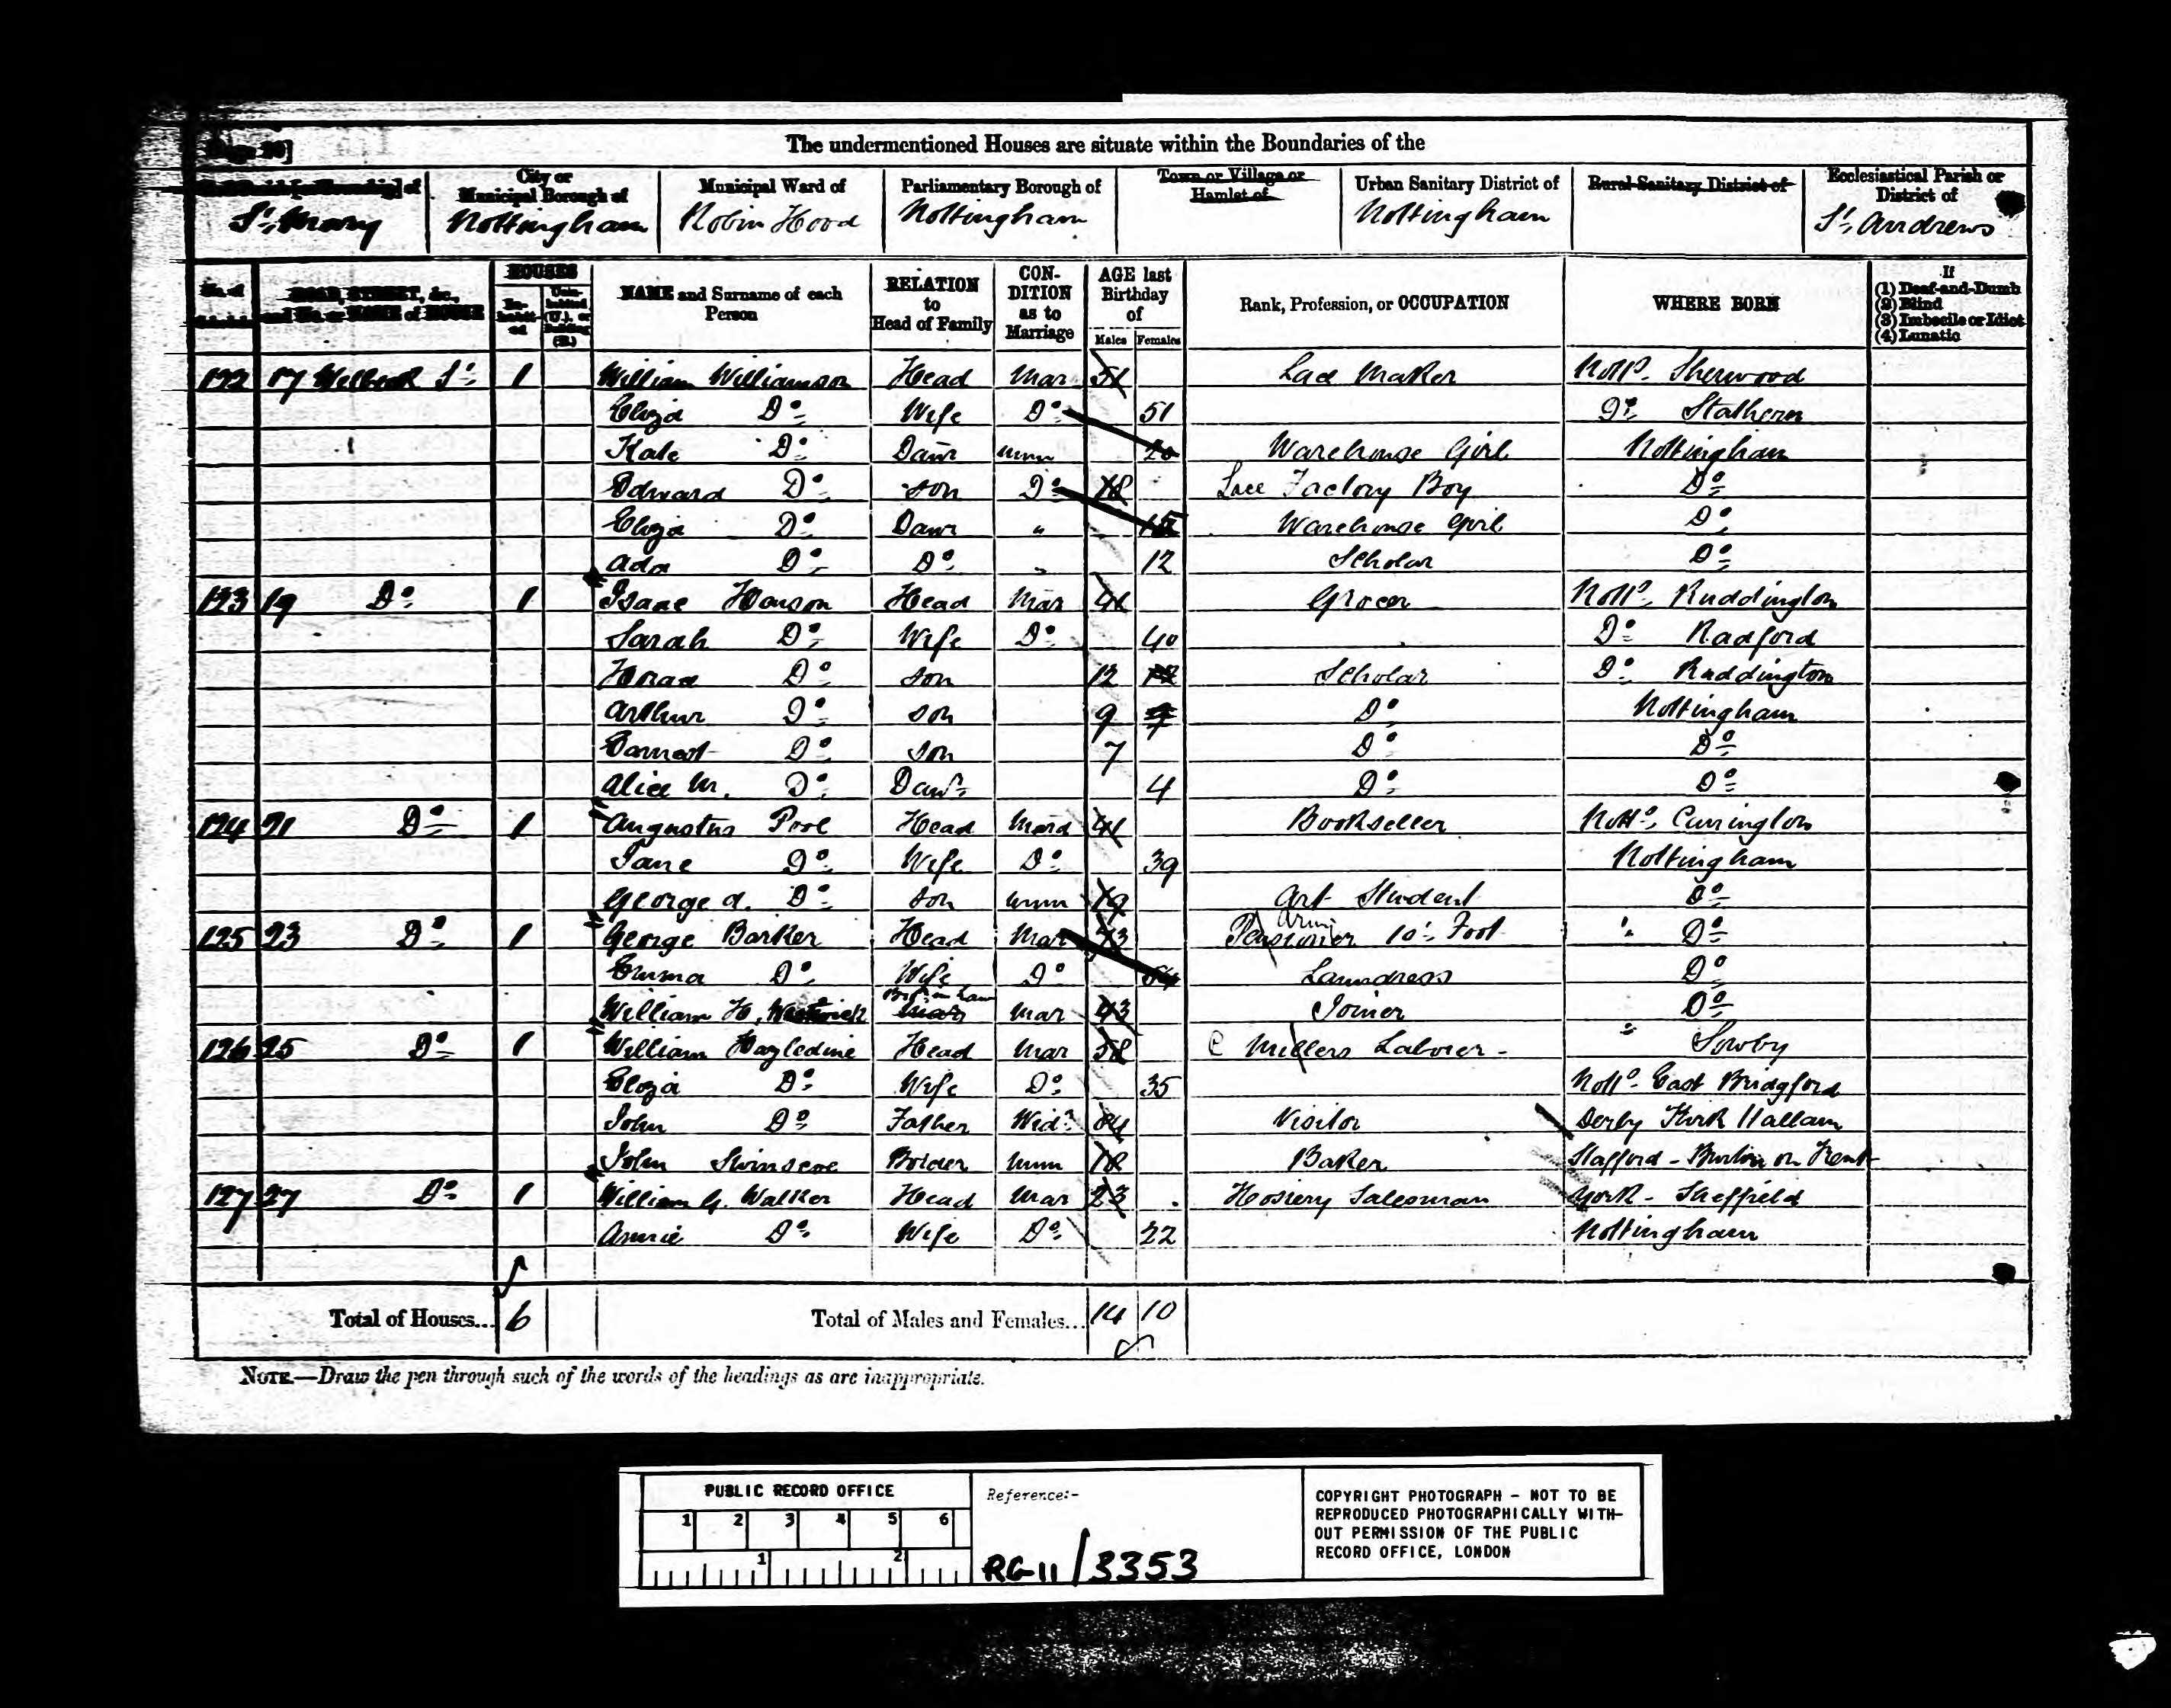 The undermentioned Houses are situate within the Boundaries of the
City or Municipal Borough of
Municipal Ward of
Parliamentary Borough of
Town or Village or Hamlet of
Urban Sanitary District of
Rural Sanitary District of
Ecclesiastical Parish or District of
St. Mary Nottingham Robin Hood Nottingham Nottingham St. Andrews
No. of ROAD, STREET, &c., and No. or NAME of HOUSE
HOUSES
NAME and Surname of each Person
RELATION to Head of Family
CONDITION as to Marriage
AGE last Birthday of
Males Females
Rank, Profession, or OCCUPATION
WHERE BORN
If
(1) Deaf-and-Dumb
(2) Blind
(3) Imbecile or Idiot
(4) Lunatic
122 17 Welbeck St. 1 William Williamson Head Mar 51 Lace Maker Notts. Sherwood
Eliza Do. Wife Do. 51 Do. Stathern
Kate Do. Daur unm 20 Warehouse Girl Nottingham
Edward Do. son Do. 18 Lace Factory Boy Do.
Eliza Do. Daur " 15 Warehouse Girl Do.
Ada Do. Do. " 12 Scholar Do.
123 19 Do. 1 Isaac Henson Head Mar 41 Grocer Notts. Ruddington
Sarah Do. Wife Do. 40 Do. Radford
Horace Do. son 12 Scholar Do. Ruddington
Arthur Do. son 9 Do. Nottingham
Earnest Do. son 7 Do. Do.
Alice M. Do. Daur. 4 Do. Do.
124 21 Do. 1 Augustus Pool Head Mard 41 Bookseller Notts. Carrington
Jane Do. Wife Do. 39 Nottingham
George A. Do. son unm 19 Art Student Do.
125 23 Do. 1 George Barker Head Mar Army Pensioner 10th Foot " Do.
Emma Do. Wife Do. Laundress Do.
William H. Bro in Law Mar 43 Joiner Do.
126 25 Do. 1 William Hazledine Head Mar 58 C Millers Laborer - " Sowby
Eliza Do. Wife Do. 35 Notts. East Bridgford
John Do. Father Widr 84 Visitor Derby Kirk Hallam
John Swinscoe Border unm 18 Baker Stafford - Burton on Trent
127 27 Do. 1 William G. Walker Head Mar 23 Hosiery Salesman York - Sheffield
Annie Do. Wife Do. 22 Nottingham
Total of Houses... 6 Total of Males and Females... 14 10
NOTE.—Draw the pen through such of the words of the headings as are inappropriate.
PUBLIC RECORD OFFICE
1 2 3 4 5 6
1 2
Reference:-
RG 11/3353
COPYRIGHT PHOTOGRAPH - NOT TO BE
REPRODUCED PHOTOGRAPHICALLY WITH-
OUT PERMISSION OF THE PUBLIC
RECORD OFFICE, LONDON